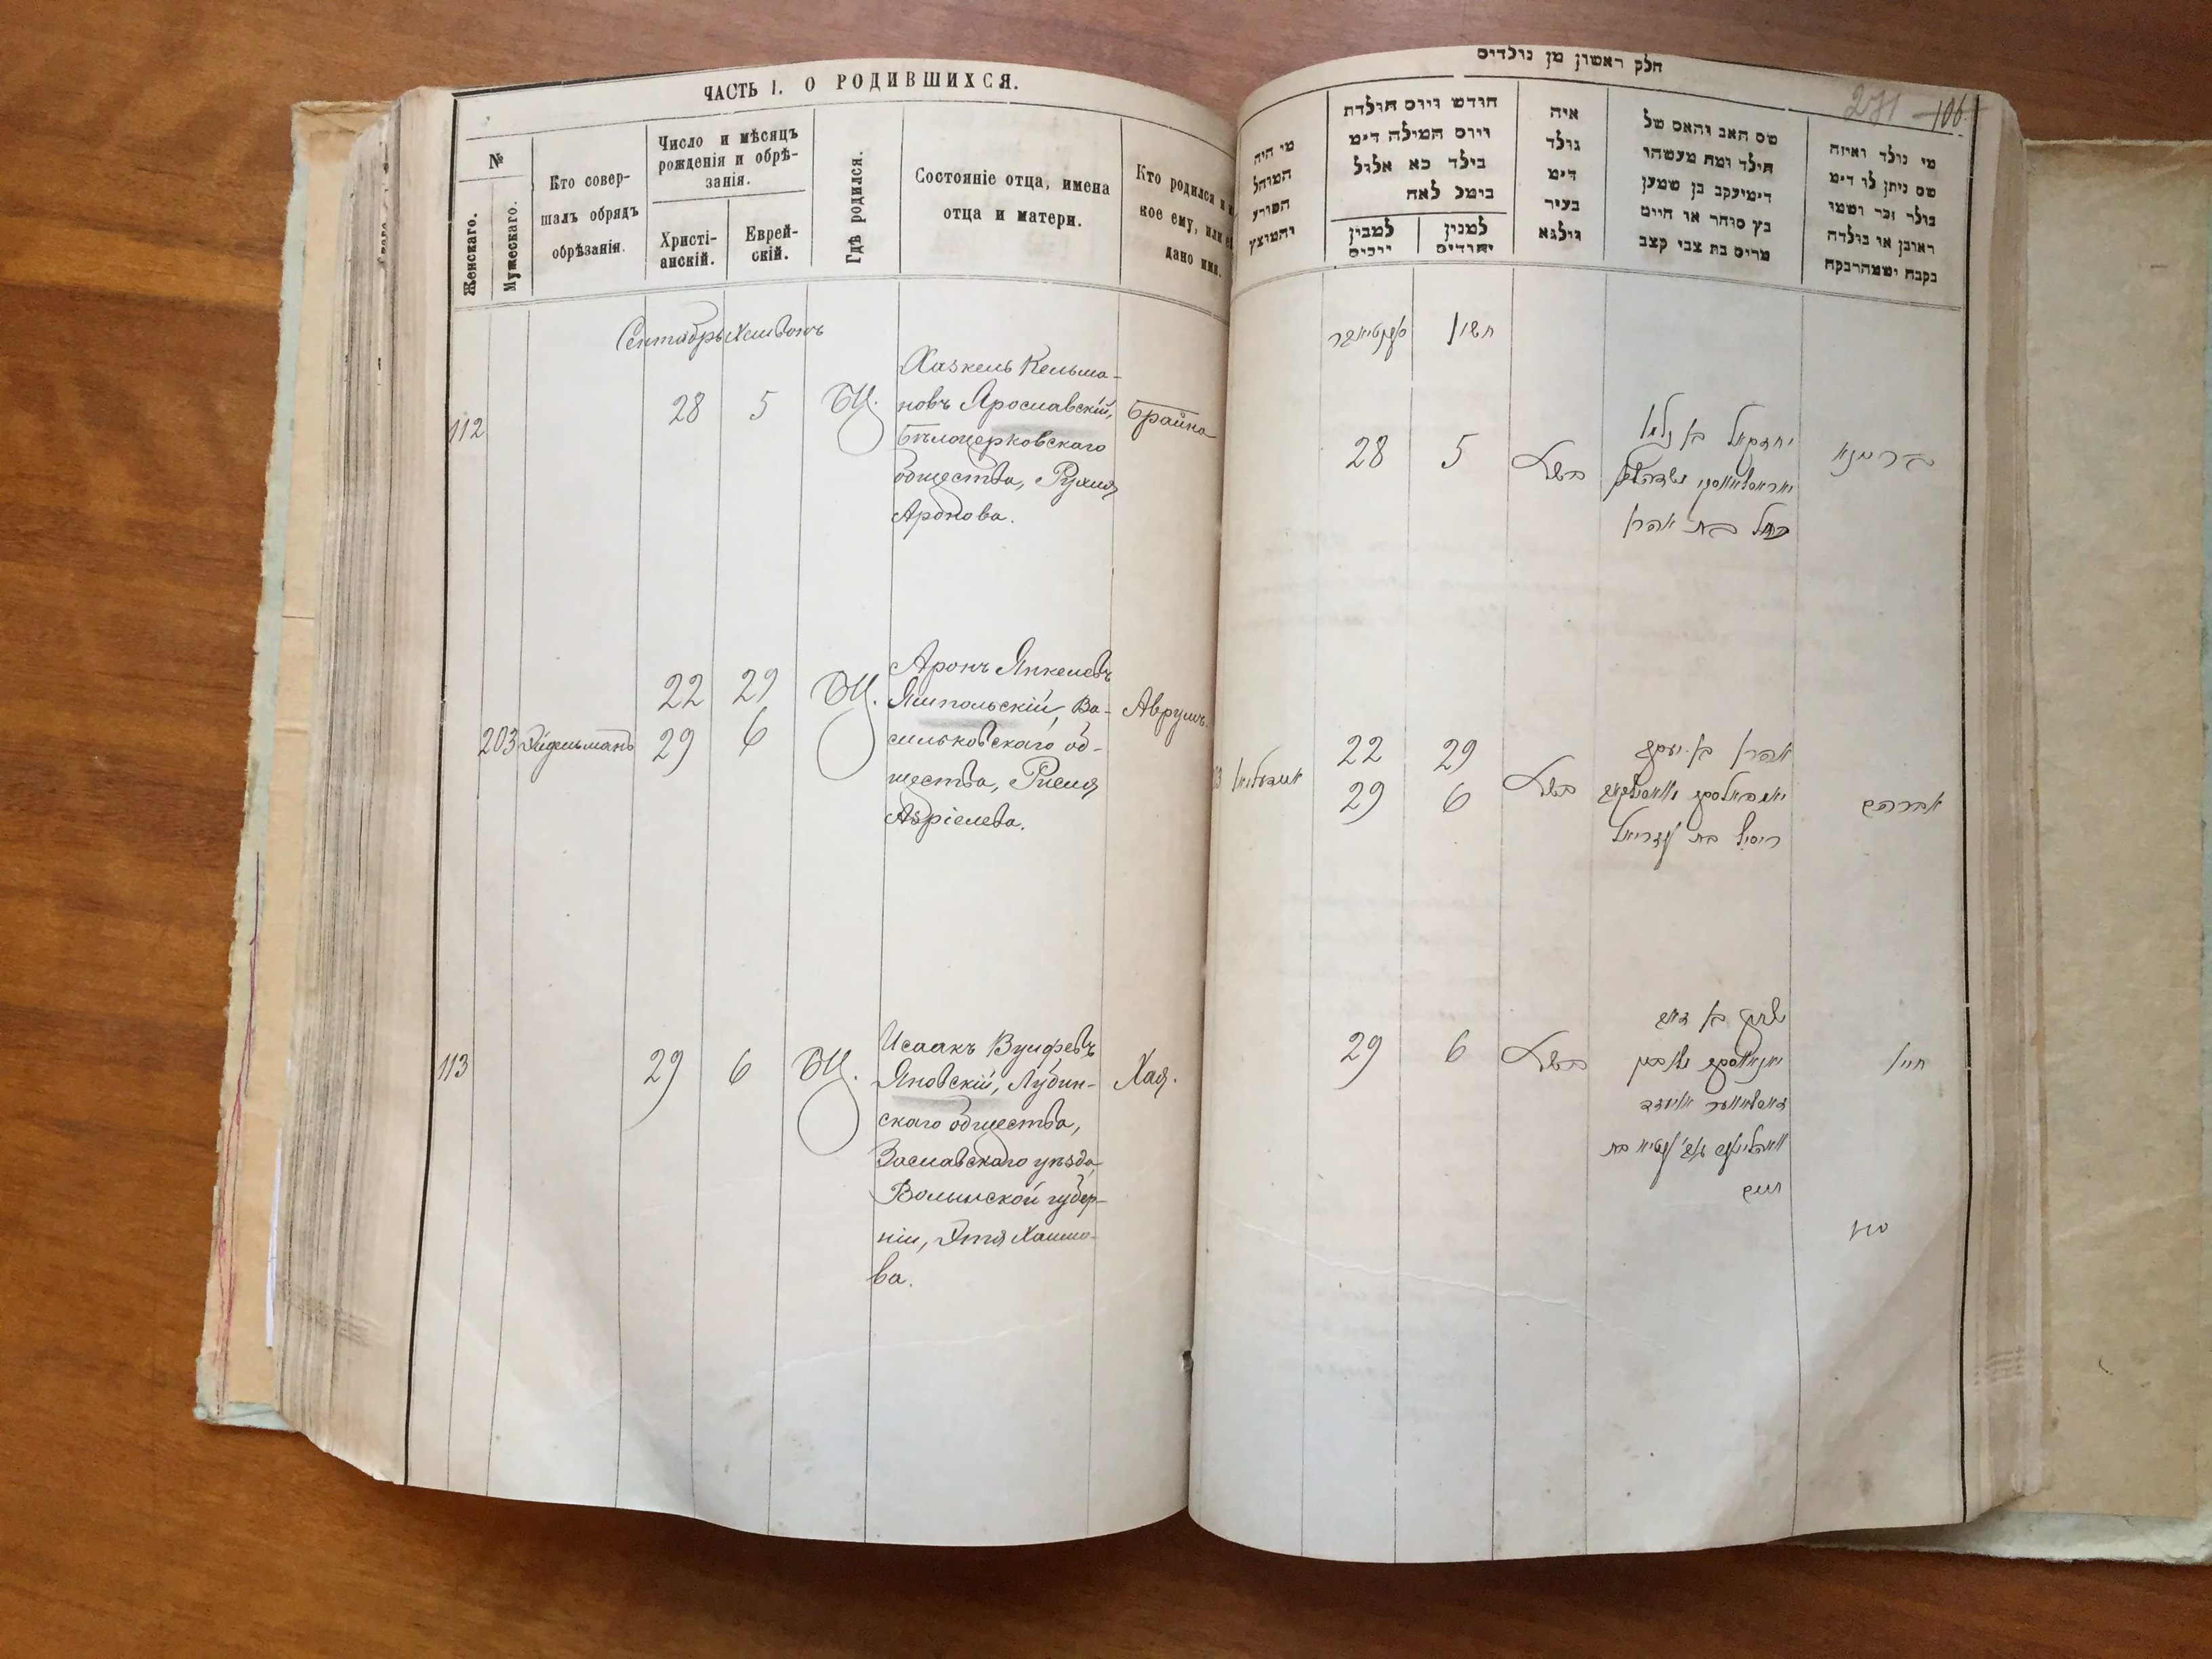 ЧАСТЬ I. О РОДИВШИХСЯ.
№
Женскаго.
Мужескаго.
Кто совер-
шалъ обрядъ
обрѣзанія.
Число и мѣсяцъ
рожденія и обрѣ-
занія.
Христі-
анскій.
Еврей-
скій.
Гдѣ родился.
Состояніе отца, имена
отца и матери.
Кто родился и
кое ему, или
дано имя.
Сентябрь Хешвонъ
112
28 5 БЦ.
Хазкель Кельма-
новъ Ярославскій,
Бѣлоцерковскаго
общества, Рухля
Аронова.
Брайна
203 Эйдельманъ
22 29 БЦ.
29 6
Аронъ Янкелевъ
Ямпольскій, Ва-
сильковскаго об-
щества, Рисля
Азріелева.
Аврумъ.
113
29 6 БЦ.
Исаакъ Вульфовъ
Яновскій, Лубин-
скаго общества,
Заславскаго уѣзда
Волынской губер-
ніи, Этя Хаимо-
ва.
Хая.
חלק ראשון מן נולדים
271 106
מי היה
המוהל
הפורע
והמוצץ
חודש ויום הולדת
ויום המילה דימ
בילד כא אלול
בימל לאח
למנין
יהודים
איה
נולד
דימ
בעיר
ווילנא
שם האב והאם של
הילד ומה מעשהו
דימיעקב בן שמען
כץ סוחר או חיים
מרים בת צבי קצב
מי נולד ואיזה
שם ניתן לו דימ
בולד זכר ושמו
ראובן או בולדה
נקבה ושמהרבקה
חשון
28 5
יחזקאל בן קלמן
רחל בת אהרן
בריינא
22 29
29 6
אהרן בן יעקב
ריסיל בת עזריאל
אברהם
29 6
חיים
חיי'